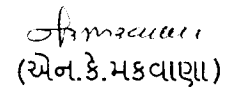 (એન.કે.મકવાણા)